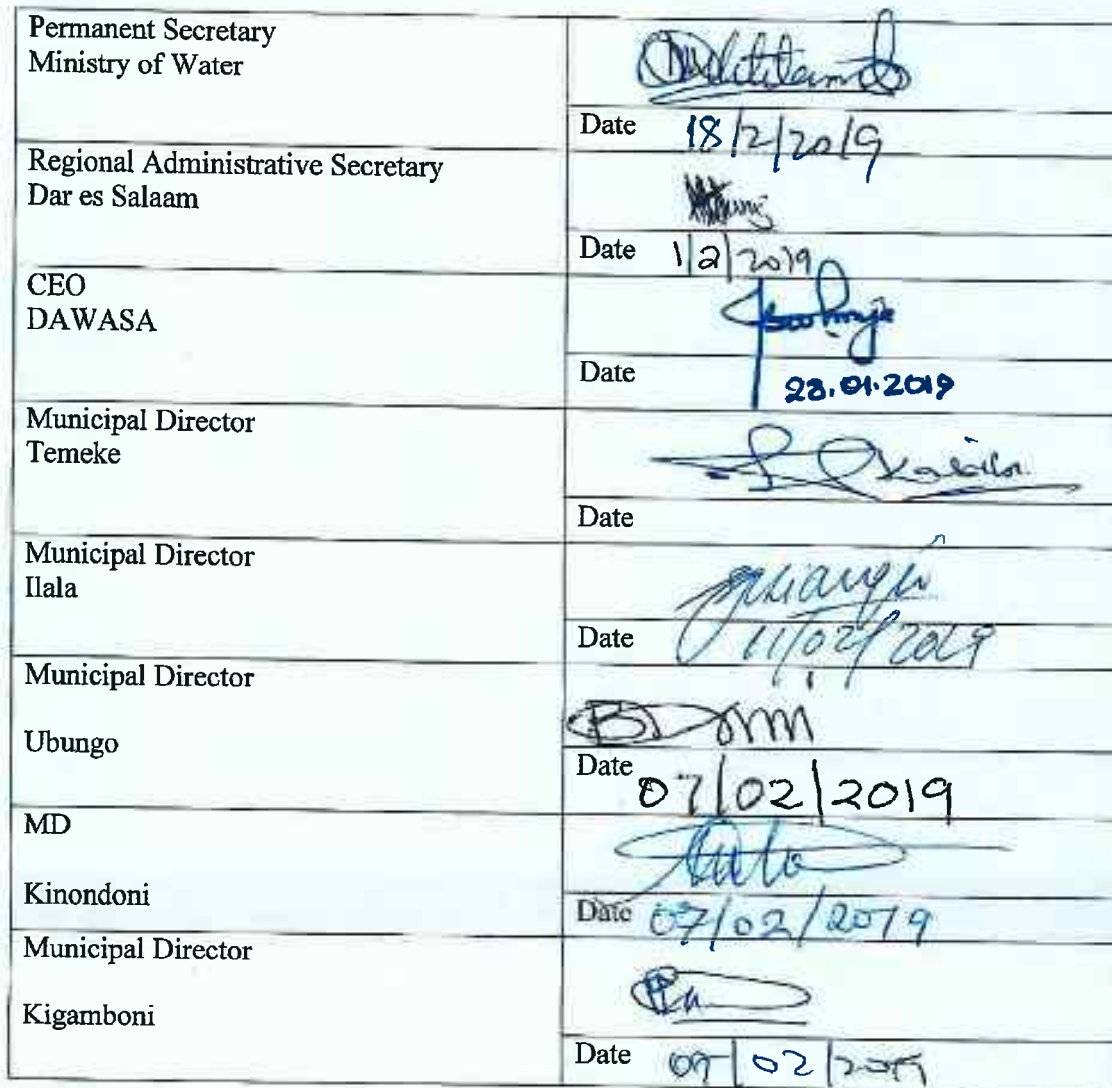 Permanent Secretary
Ministry of Water
Date 18/2/2019
Regional Administrative Secretary
Dar es Salaam
Date 1/2/2019
CEO
DAWASA
Date 28.01.2019
Municipal Director
Temeke
Date
Municipal Director
Ilala
Date 11/02/2019
Municipal Director
Ubungo
Date 07/02/2019
MD
Kinondoni
Date 07/02/2019
Municipal Director
Kigamboni
Date 02/2019